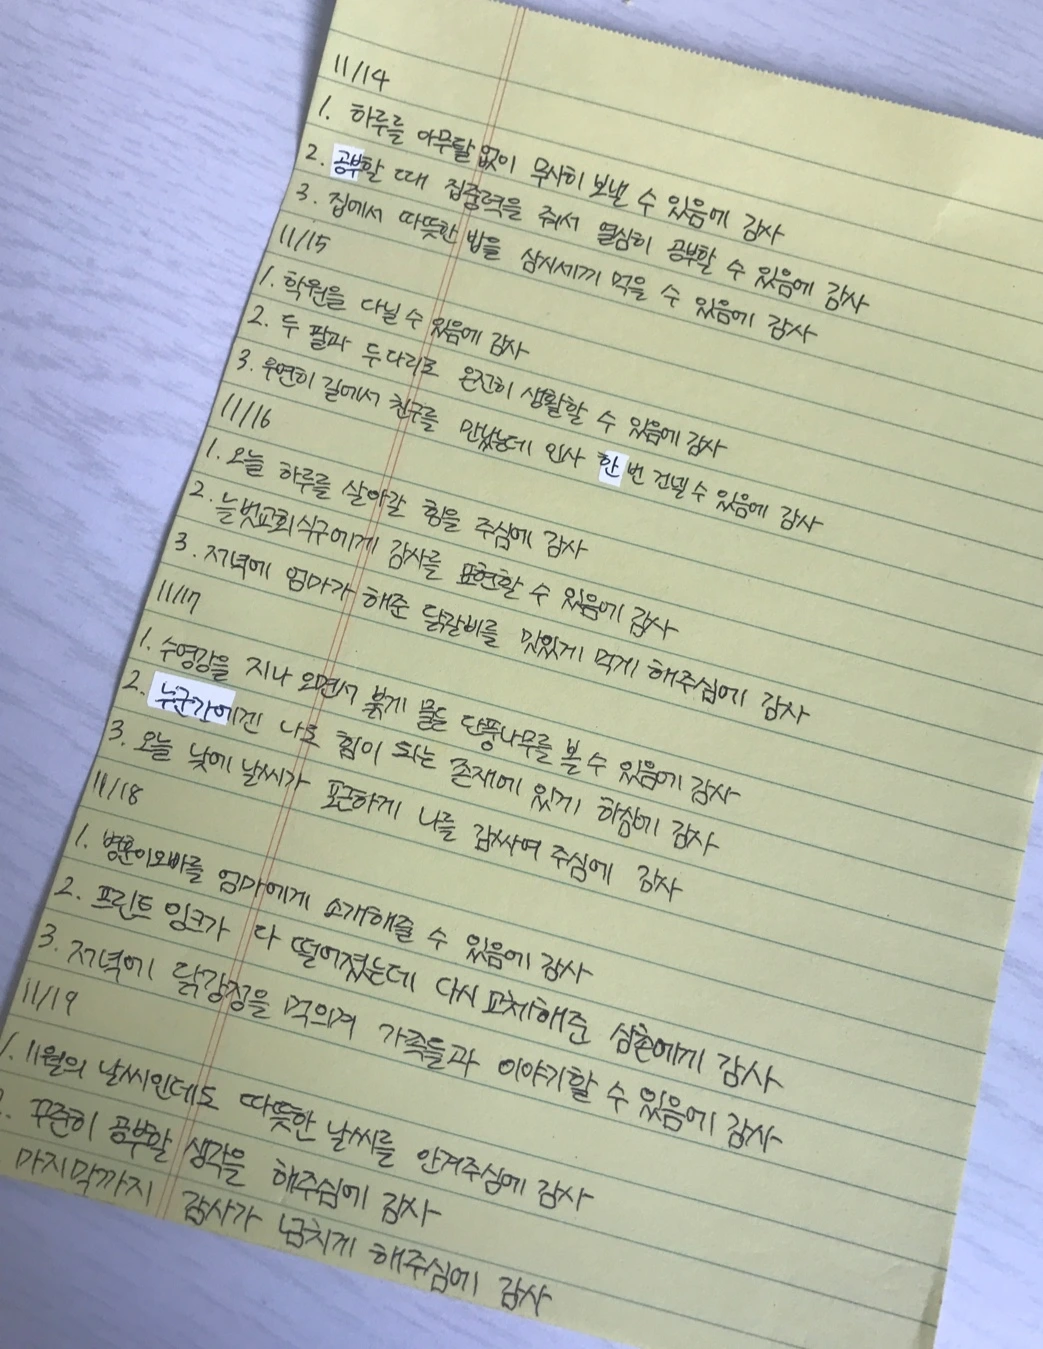 11/14
1. 하루를 아무탈 없이 무사히 보낼 수 있음에 감사
2. 공부할 때 집중력을 줘서 열심히 공부할 수 있음에 감사
3. 집에서 따뜻한 밥을 삼시세끼 먹을 수 있음에 감사
11/15
1. 학원을 다닐 수 있음에 감사
2. 두 팔과 두 다리로 온전히 생활할 수 있음에 감사
3. 우연히 길에서 친구를 만났는데 인사 한 번 건넬 수 있음에 감사
11/16
1. 오늘 하루를 살아갈 힘을 주심에 감사
2. 늘벗교회식구에게 감사를 표현할 수 있음에 감사
3. 저녁에 엄마가 해준 닭갈비를 맛있게 먹게 해주심에 감사
11/17
1. 수영강을 지나 오면서 붉게 물든 단풍나무를 볼 수 있음에 감사
2. 누군가에겐 나로 힘이 되는 존재에 있게 하심에 감사
3. 오늘 낮에 날씨가 포근하게 나를 감싸여 주심에 감사
11/18
1. 병훈이오빠를 엄마에게 소개해줄 수 있음에 감사
2. 프린트 잉크가 다 떨어졌는데 다시 교체해준 삼촌에게 감사
3. 저녁에 닭강정을 먹으며 가족들과 이야기할 수 있음에 감사
11/19
1. 11월의 날씨인데도 따뜻한 날씨를 안겨주심에 감사
2. 꾸준히 공부할 생각을 해주심에 감사
마지막까지 감사가 넘치게 해주심에 감사